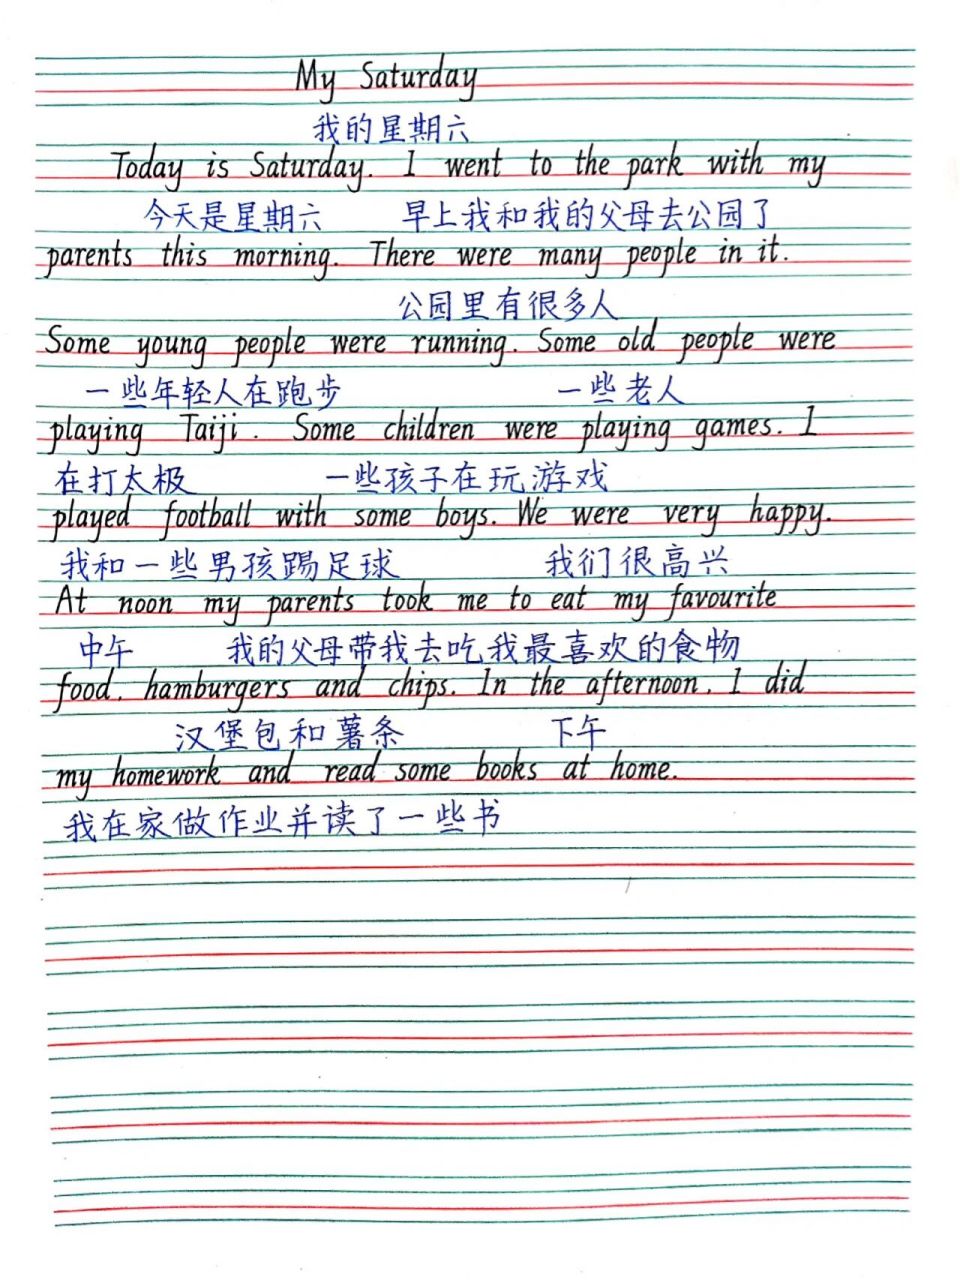 My Saturday
我的星期六
Today is Saturday. I went to the park with my
今天是星期六 早上我和我的父母去公园了
parents this morning. There were many people in it.
公园里有很多人
Some young people were running. Some old people were
一些年轻人在跑步 一些老人
playing Taiji. Some children were playing games. I
在打太极 一些孩子在玩游戏
played football with some boys. We were very happy.
我和一些男孩踢足球 我们很高兴
At noon my parents took me to eat my favourite
中午 我的父母带我去吃我最喜欢的食物
food. hamburgers and chips. In the afternoon. I did
汉堡包和薯条 下午
my homework and read some books at home.
我在家做作业并读了一些书